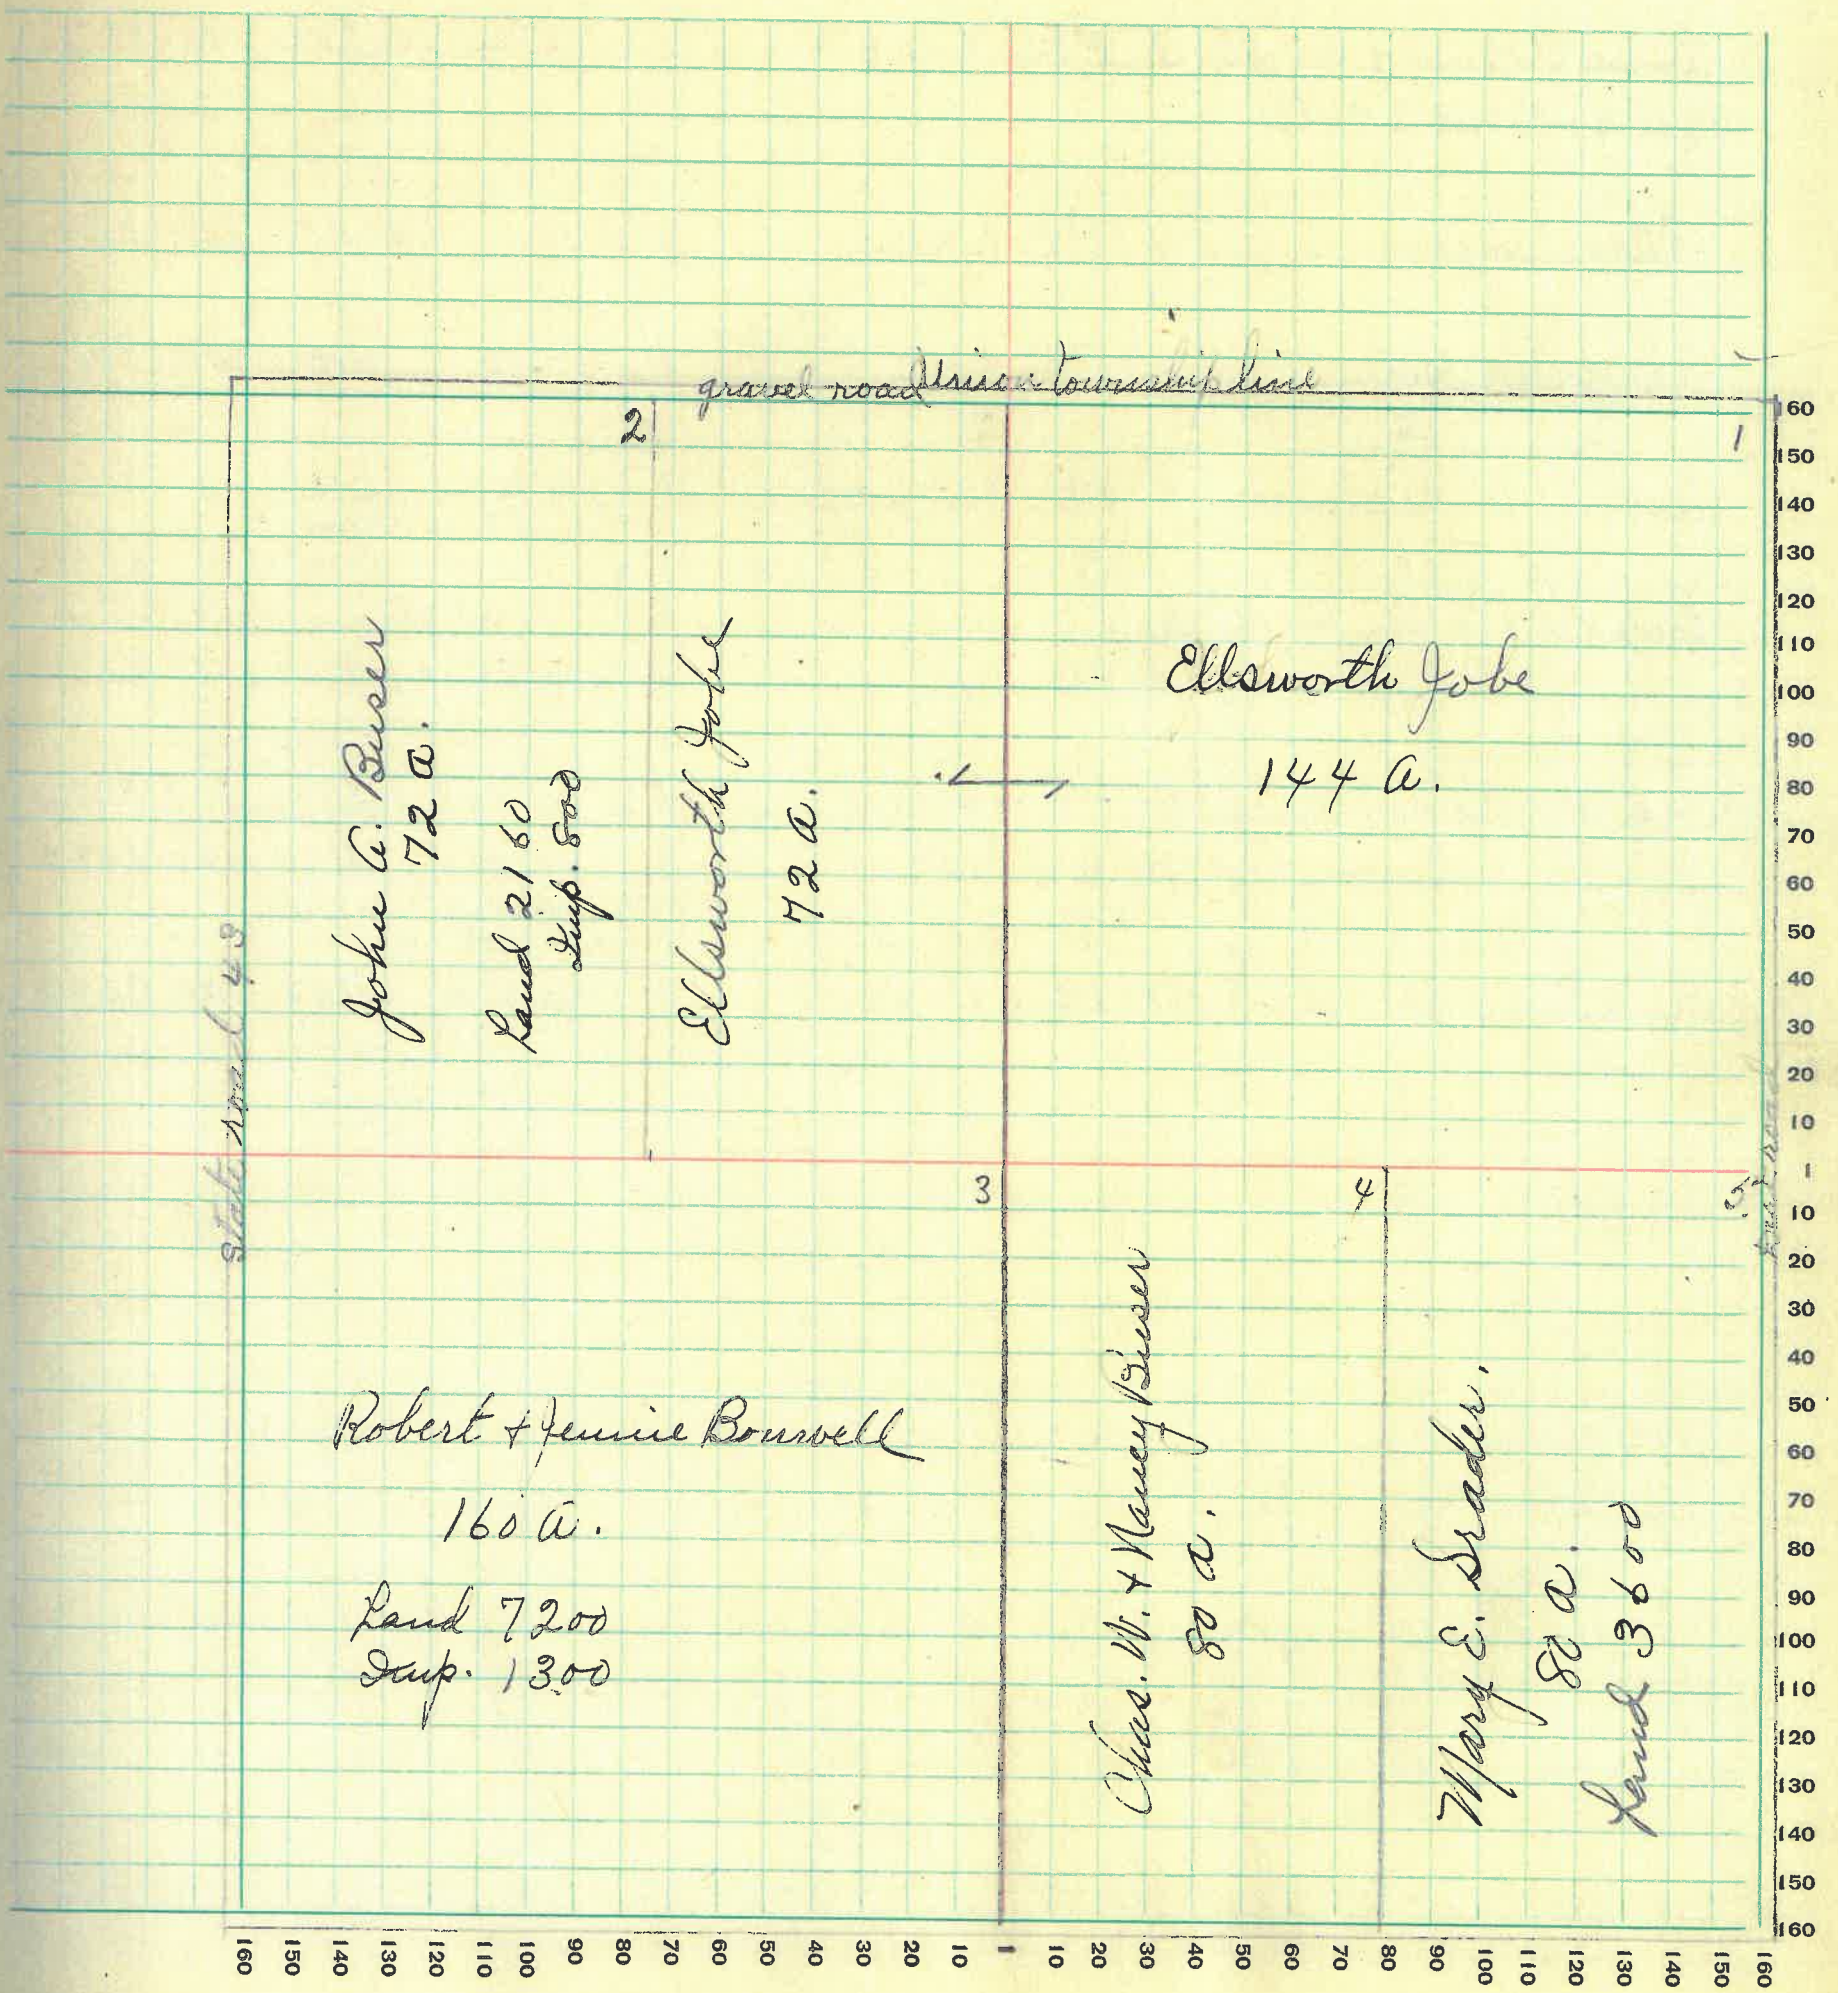 gravel road Union township line
2
1
John A. Buser
72 a.
Land 2160
Imp. 800
Ellsworth Jobe
72 a.
Ellsworth Jobe
144 a.
State road 43
3
4
5
road
Robert + Jennie Bonwell
160 a.
Land 7200
Imp. 1300
Chas. W. + Nancy Buser
80 a.
Mary E. Srader.
80 a.
Land 3600
160
150
140
130
120
110
100
90
80
70
60
50
40
30
20
10
1
10
20
30
40
50
60
70
80
90
100
110
120
130
140
150
160
160 150 140 130 120 110 100 90 80 70 60 50 40 30 20 10 1 10 20 30 40 50 60 70 80 90 100 110 120 130 140 150 160